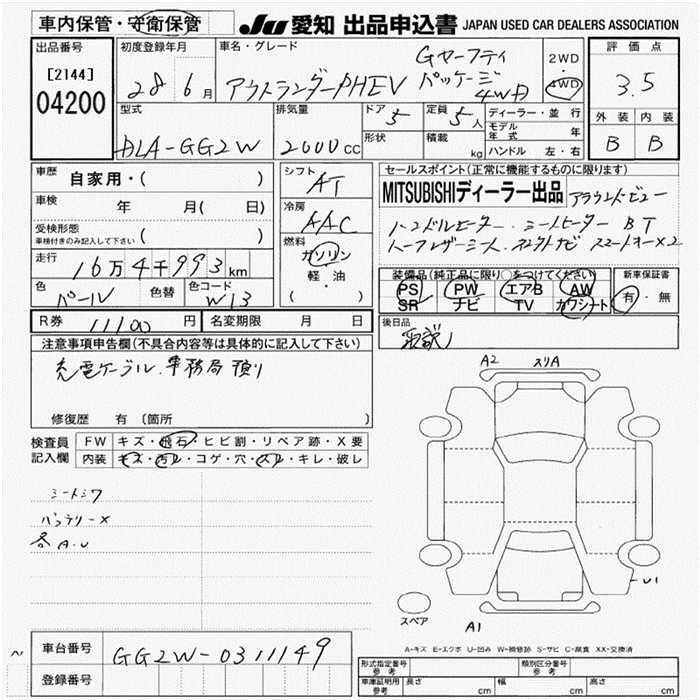 車内保管・守衛保管
JU 愛知 出品申込書 JAPAN USED CAR DEALERS ASSOCIATION
出品番号 [2144] 04200
初度登録年月 28 6月
車名・グレード アウトランダーPHEV Gセーフティパッケージ 4WD
2WD・4WD
評価点 3.5
外装 内装
B B
型式 DLA-GG2W
排気量 2000cc
ドア 5
形状
定員 5人
積載 kg
ディーラー・並行
モデル年式 年
ハンドル 左・右
車歴 自家用・( )
車検 年 月( 日)
受検形態 車検付きのみ記入して下さい ( )
走行 16万4千993km
色 パール 色替 色コード W13
シフト AT
冷房 AAC
燃料 ガソリン 軽・油 ( )
セールスポイント(正常に機能するものに限ります)
MITSUBISHIディーラー出品 アラウンドビュー
ハンドルヒーター・シートヒーター BT
ハーフレザーシート
装備品(純正品に限り○をつけてください)
PS PW エアB AW
SR ナビ TV カワシート
新車保証書 有・無
R券 11100円 名変期限 月 日
後日品 取説
注意事項申告欄(不具合内容等は具体的に記入して下さい)
充電ケーブル、事務局預り
修復歴 有 〔箇所
検査員記入欄
FW キズ・飛石・ヒビ割・リペア跡・X要
内装 キズ・汚レ・コゲ・穴・スレ・キレ・破レ
シートシワ
バッテリーX
各A.U
A2 スリA
U1
A1
スペア
A-キズ E-エクボ U-凹み W-補修跡 S-サビ C-腐食 XX-交換済
車台番号 GG2W-0311149
登録番号
形式指定番号 参考 類別区分番号 参考
車庫証明用 参考 長さ cm 幅 cm 高さ cm